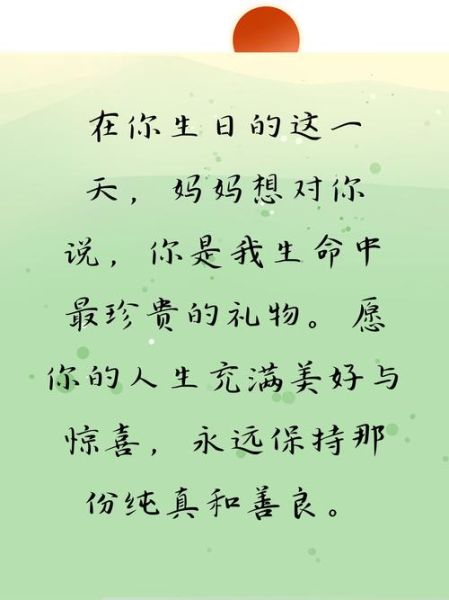 在你生日的这一
天，妈妈想对你
说，你是我生命中
最珍贵的礼物。愿
你的人生充满美好与
惊喜，永远保持那
份纯真和善良。